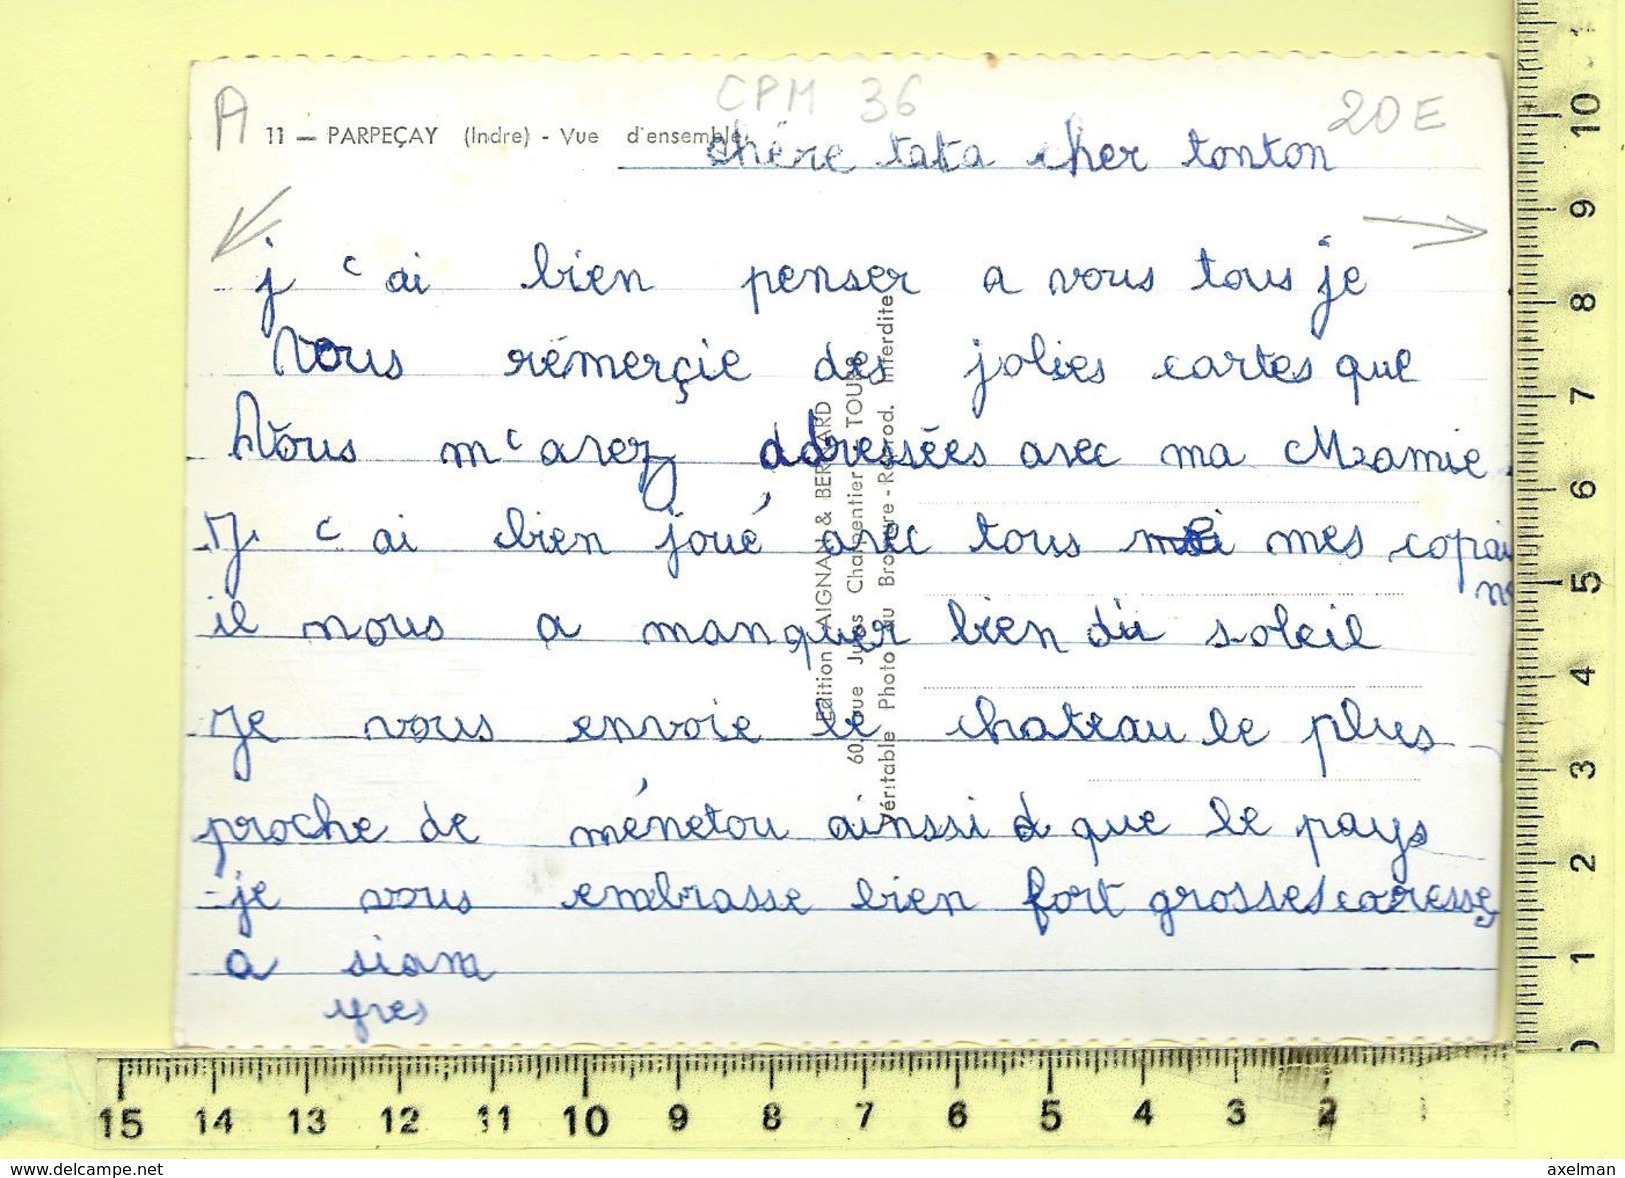 CPM 36
A
20E
11 — PARPEÇAY (Indre) - Vue d'ensemble
chère tata cher tonton
j'ai bien penser a vous tous je
Vous rémerçie des jolies cartes que
Vous m'avez addressées avec ma Mamie.
J'ai bien joué avec tous mes copains
il nous a manquer bien du soleil
Je vous envoie le chateau le plus
proche de ménetou ainssi que le pays
je vous embrasse bien fort grosses caresses
a siam
yves
Edition AIGNAN & BERNARD
60, rue Jules Charpentier - TOURS
Véritable Photo au Bromure - Reprod. Interdite
10
9
8
7
6
5
4
3
2
1
0
15 14 13 12 11 10 9 8 7 6 5 4 3 2 1
www.delcampe.net
axelman